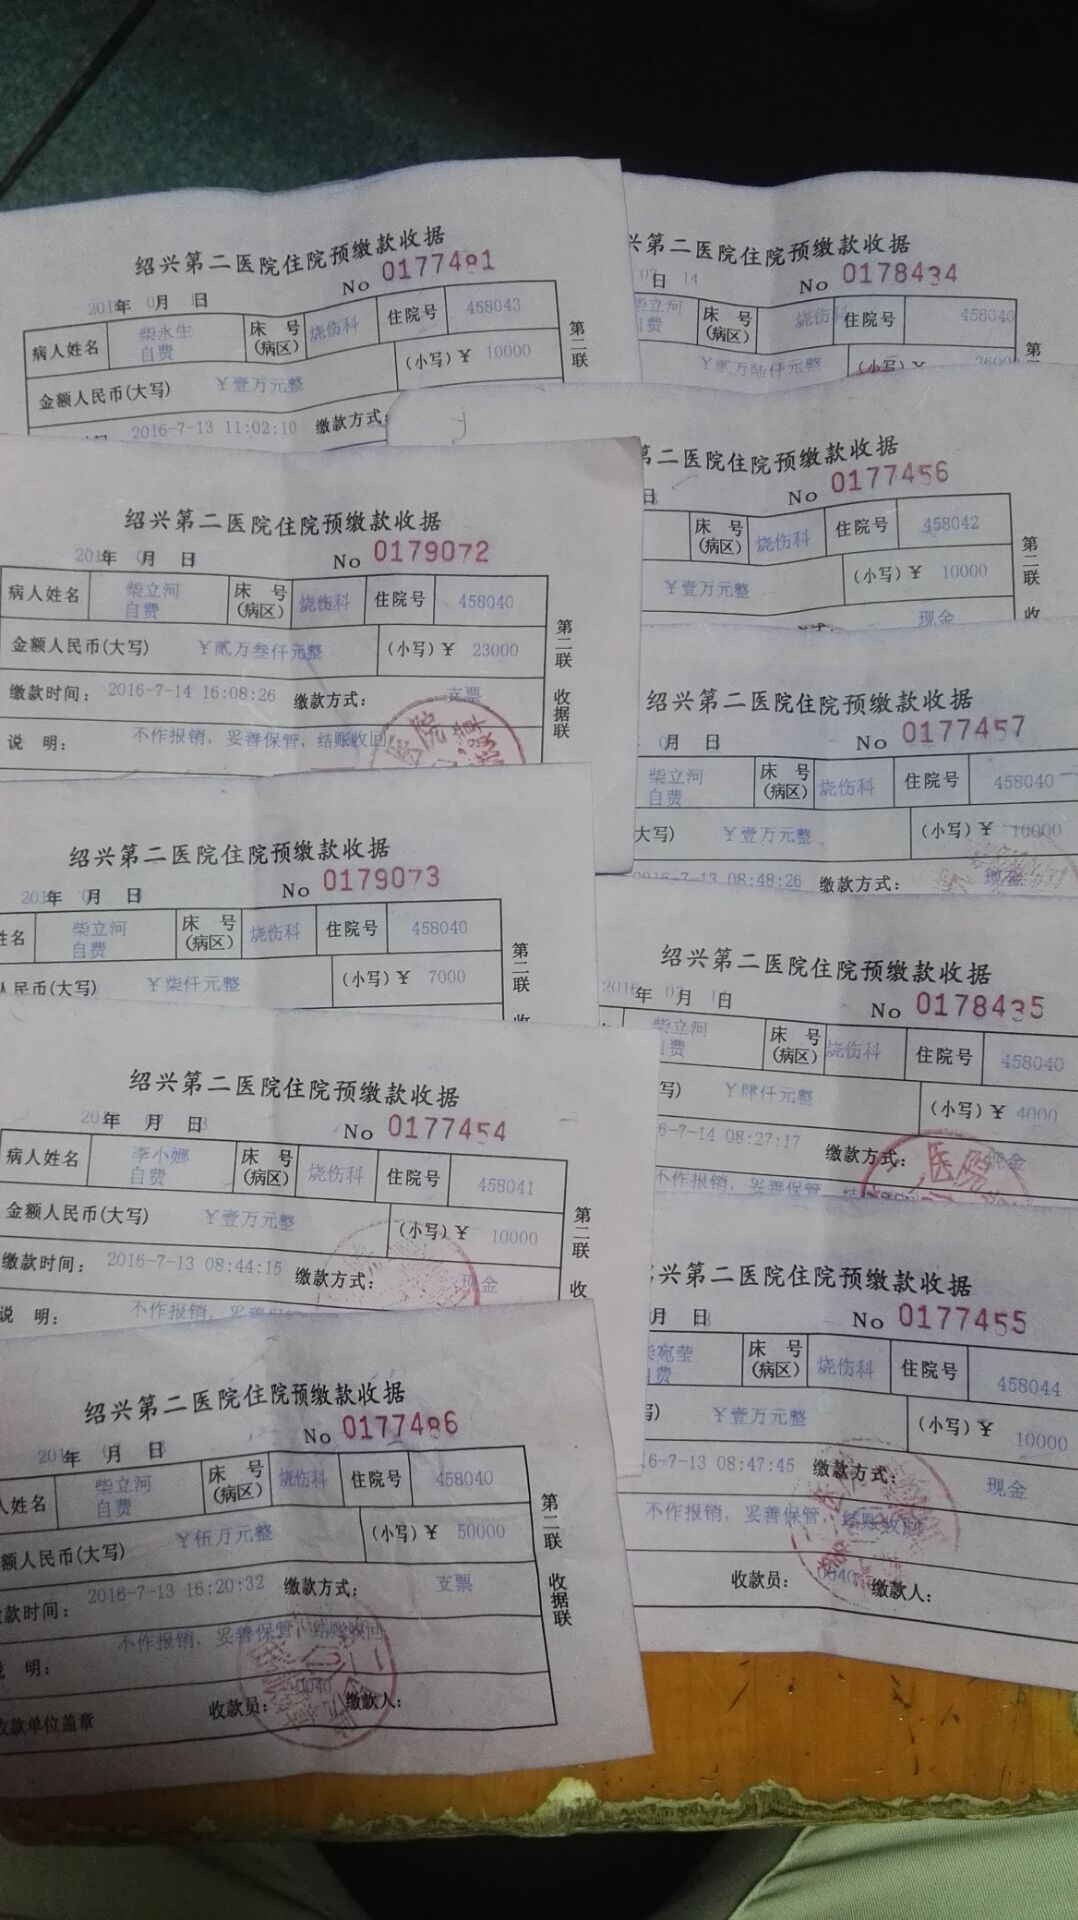 绍兴第二医院住院预缴款收据
No 0177481
201 年 0 月 1 日
病人姓名 柴永生 自费 床号(病区) 烧伤科 住院号 458043
金额人民币(大写) ￥壹万元整 (小写)￥ 10000
2016-7-13 11:02:10 缴款方式:
第二联
兴第二医院住院预缴款收据
No 0178434
07 日 14
柴立河 自费 床号(病区) 烧伤科 住院号 458040
￥贰万陆仟元整 (小写)￥ 26000
第二
绍兴第二医院住院预缴款收据
No 0179072
201 年 月 日
病人姓名 柴立河 自费 床号(病区) 烧伤科 住院号 458040
金额人民币(大写) ￥贰万叁仟元整 (小写)￥ 23000
缴款时间: 2016-7-14 16:08:26 缴款方式: 支票
说明: 不作报销，妥善保管，结账收回
第二联 收据联
第二医院住院预缴款收据
No 0177456
日
床号(病区) 烧伤科 住院号 458042
￥壹万元整 (小写)￥ 10000
现金
第二联 收
绍兴第二医院住院预缴款收据
No 0177457
月 日
柴立河 自费 床号(病区) 烧伤科 住院号 458040
大写) ￥壹万元整 (小写)￥ 10000
2016-7-13 08:48:26 缴款方式: 现金
绍兴第二医院住院预缴款收据
No 0179073
201 年 月 日
姓名 柴立河 自费 床号(病区) 烧伤科 住院号 458040
人民币(大写) ￥柒仟元整 (小写)￥ 7000
第二联 收
绍兴第二医院住院预缴款收据
No 0178435
2016 年 07 月 1 日
柴立河 自费 床号(病区) 烧伤科 住院号 458040
写) ￥肆仟元整 (小写)￥ 4000
6-7-14 08:27:17 缴款方式: 现金
不作报销，妥善保管，结
医院
绍兴第二医院住院预缴款收据
No 0177454
20 年 月 日
病人姓名 李小娜 自费 床号(病区) 烧伤科 住院号 458041
金额人民币(大写) ￥壹万元整 (小写)￥ 10000
缴款时间: 2016-7-13 08:44:15 缴款方式: 现金
说明: 不作报销，妥善保管
第二联 收
兴第二医院住院预缴款收据
No 0177455
月 日
柴宛莹 自费 床号(病区) 烧伤科 住院号 458044
写) ￥壹万元整 (小写)￥ 10000
16-7-13 08:47:45 缴款方式: 现金
不作报销，妥善保管，结账收回
收款员: 0040 缴款人:
绍兴第二医院住院预缴款收据
No 0177486
201 年 月 日
人姓名 柴立河 自费 床号(病区) 烧伤科 住院号 458040
额人民币(大写) ￥伍万元整 (小写)￥ 50000
款时间: 2016-7-13 16:20:32 缴款方式: 支票
说明: 不作报销，妥善保管，结账收回
收款单位盖章 收款员: 0040 缴款人:
第二联 收据联